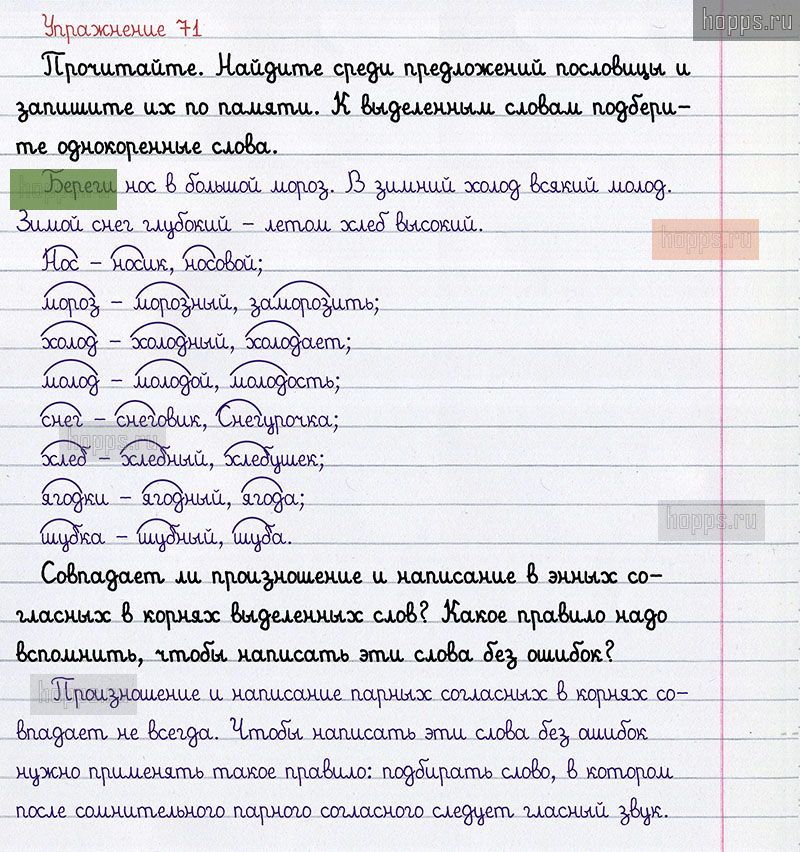 hopps.ru
Упражнение 71
Прочитайте. Найдите среди предложений пословицы и
запишите их по памяти. К выделенным словам подбери-
те однокоренные слова.
Береги нос в большой мороз. В зимний холод всякий молод.
Зимой снег глубокий – летом хлеб высокий.
hopps.ru
Нос – носик, носовой;
мороз – морозный, заморозить;
холод – холодный, холодает;
молод – молодой, молодость;
снег – снеговик, Снегурочка;
hopps.ru
хлеб – хлебный, хлебушек;
ягодки – ягодный, ягода;
hopps.ru
шубка – шубный, шуба.
Совпадает ли произношение и написание в энных со-
гласных в корнях выделенных слов? Какое правило надо
вспомнить, чтобы написать эти слова без ошибок?
Произношение и написание парных согласных в корнях со-
впадает не всегда. Чтобы написать эти слова без ошибок
нужно применять такое правило: подбирать слово, в котором
после сомнительного парного согласного следует гласный звук.